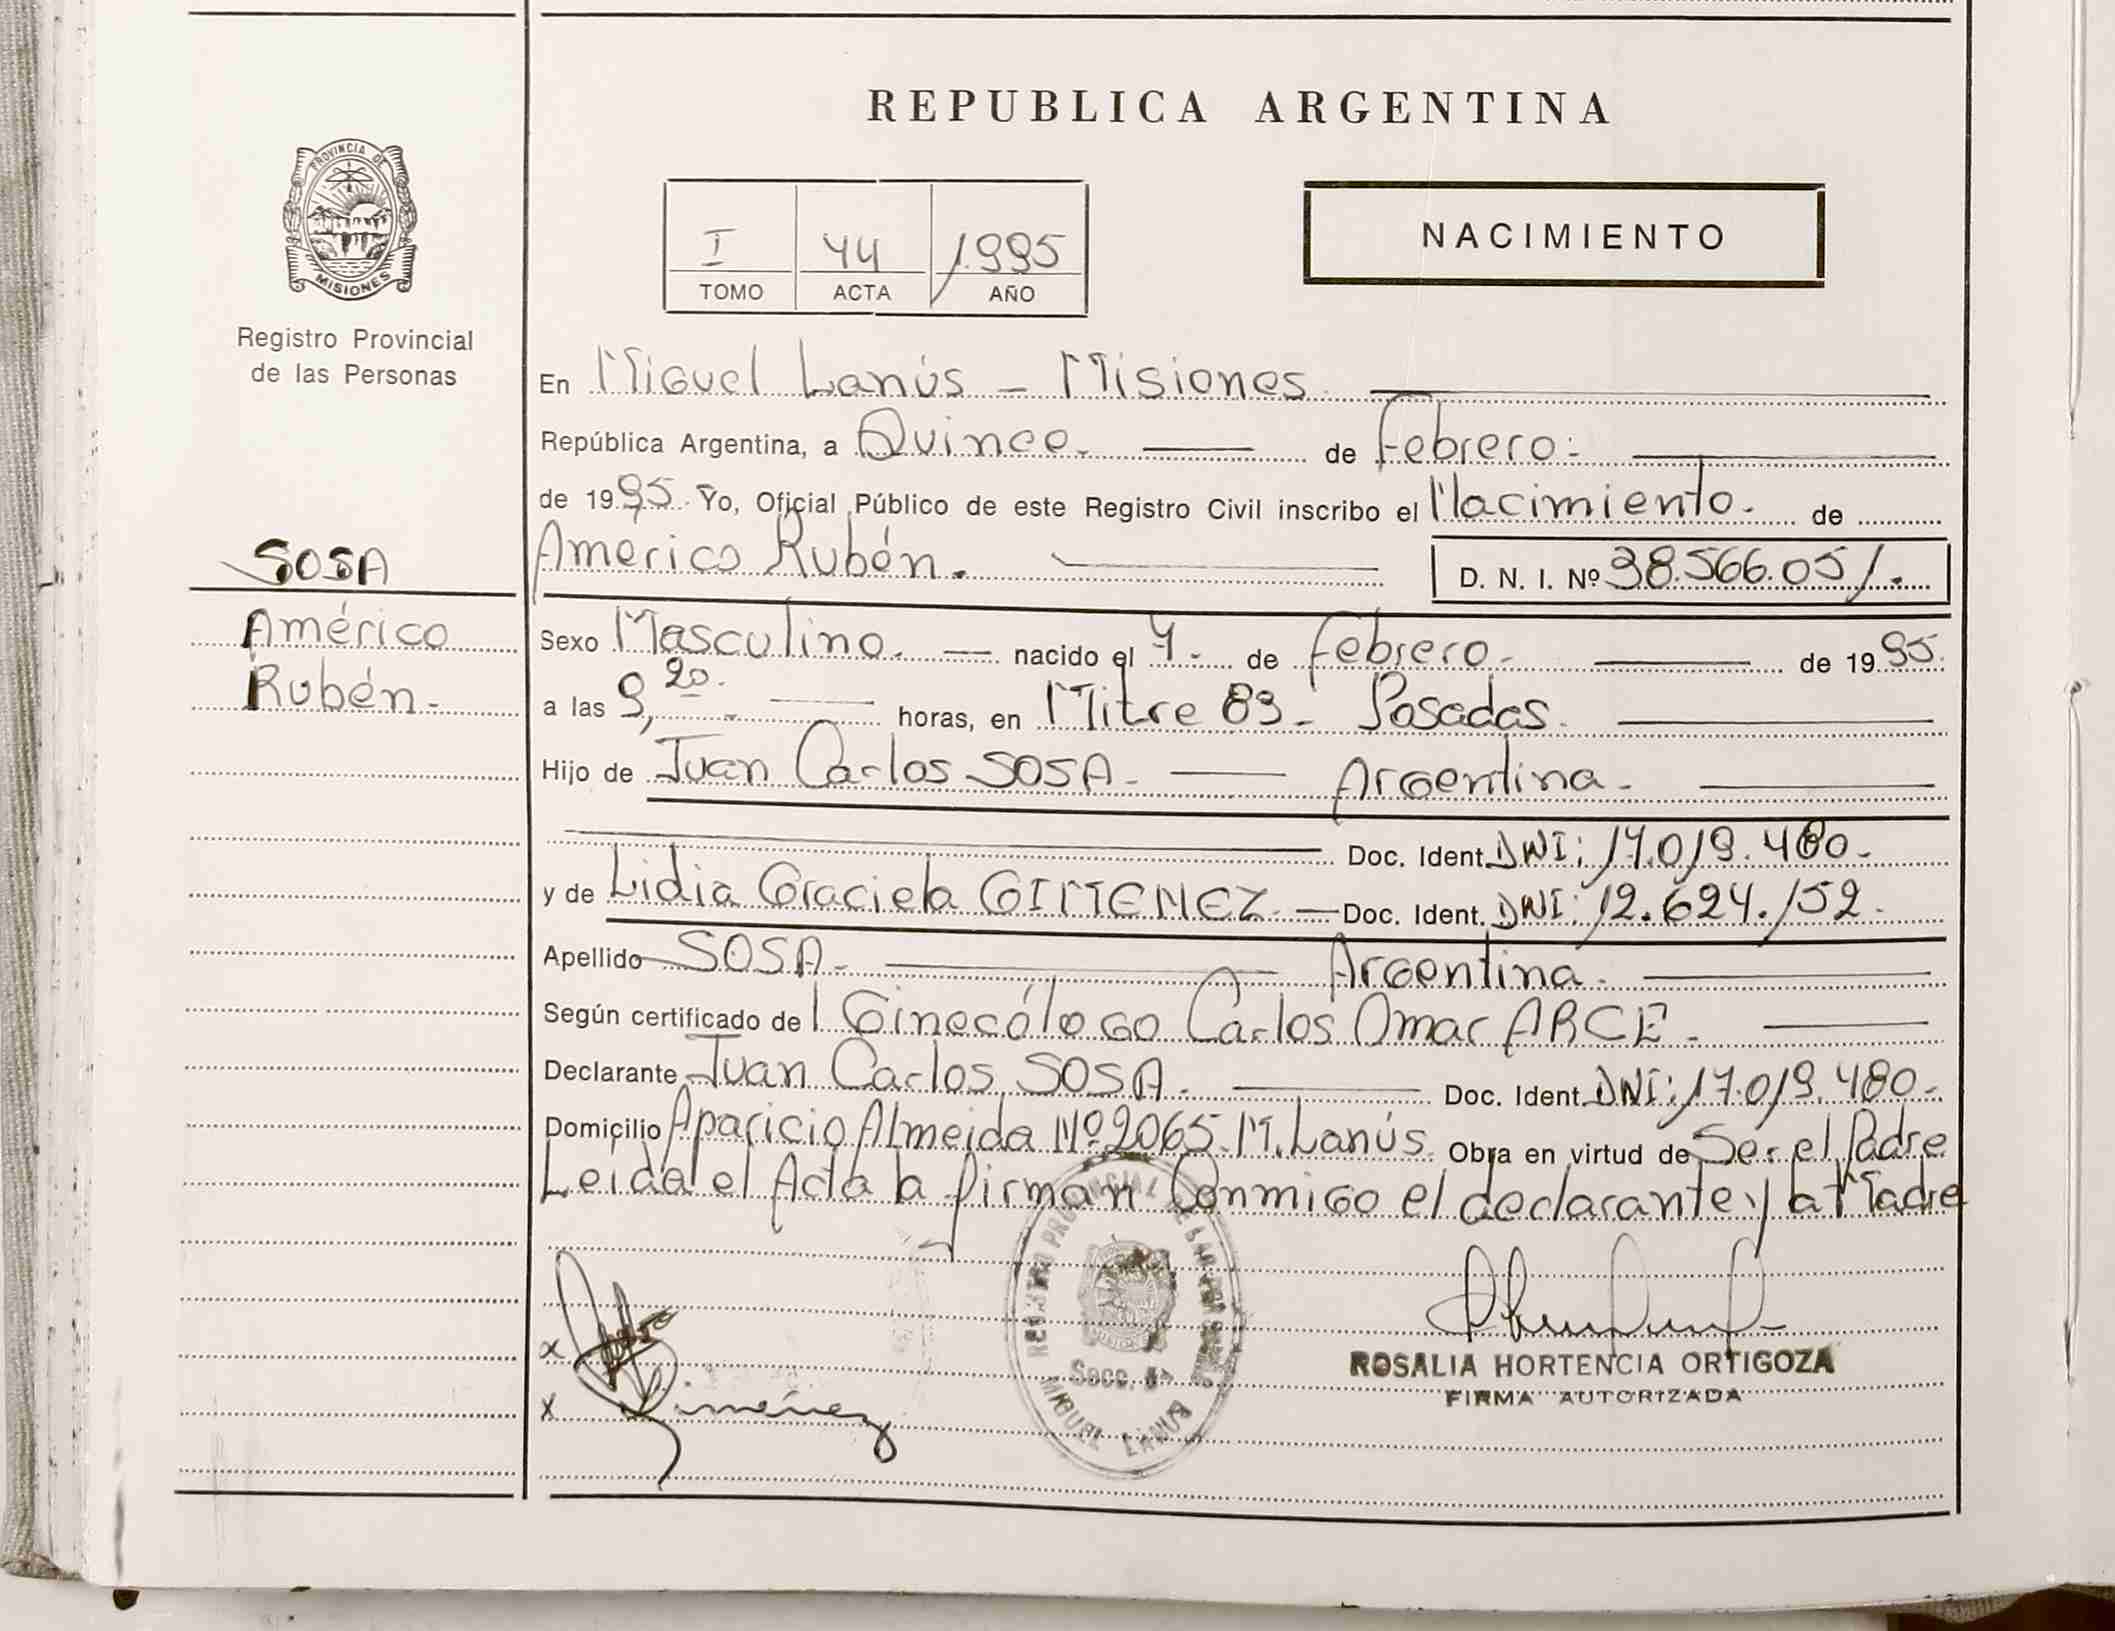 REPUBLICA ARGENTINA
PROVINCIA DE
MISIONES
Registro Provincial
de las Personas
SOSA
Américo
Rubén.-
I 44 1.995
TOMO ACTA AÑO
NACIMIENTO
En Miguel Lanús - Misiones
República Argentina, a Quince. de Febrero.-
de 1995. Yo, Oficial Público de este Registro Civil inscribo el Nacimiento. de
Americo Rubén. D. N. I. Nº 38.566.051.
Sexo Masculino. nacido el 4. de febrero. de 1995.
a las 9,20. horas, en Mitre 83.- Posadas.
Hijo de Juan Carlos SOSA.- Argentina.-
Doc. Ident. DNI: 17.019.480.-
y de Lidia Graciela GIMENEZ.- Doc. Ident. DNI: 12.624.152.-
Apellido SOSA.- Argentina.
Según certificado del Ginecólogo Carlos Omar ARCE.-
Declarante Juan Carlos SOSA.- Doc. Ident. DNI: 17.019.480.-
Domicilio Aparicio Almeida Nº 2065. M. Lanús. Obra en virtud de Ser el Padre
Leida el Acta la firman Conmigo el declarante y la Madre
x
x Giménez
REGISTRO PROVINCIAL DE LAS PERSONAS
MIGUEL LANUS
ROSALIA HORTENCIA ORTIGOZA
FIRMA AUTORIZADA